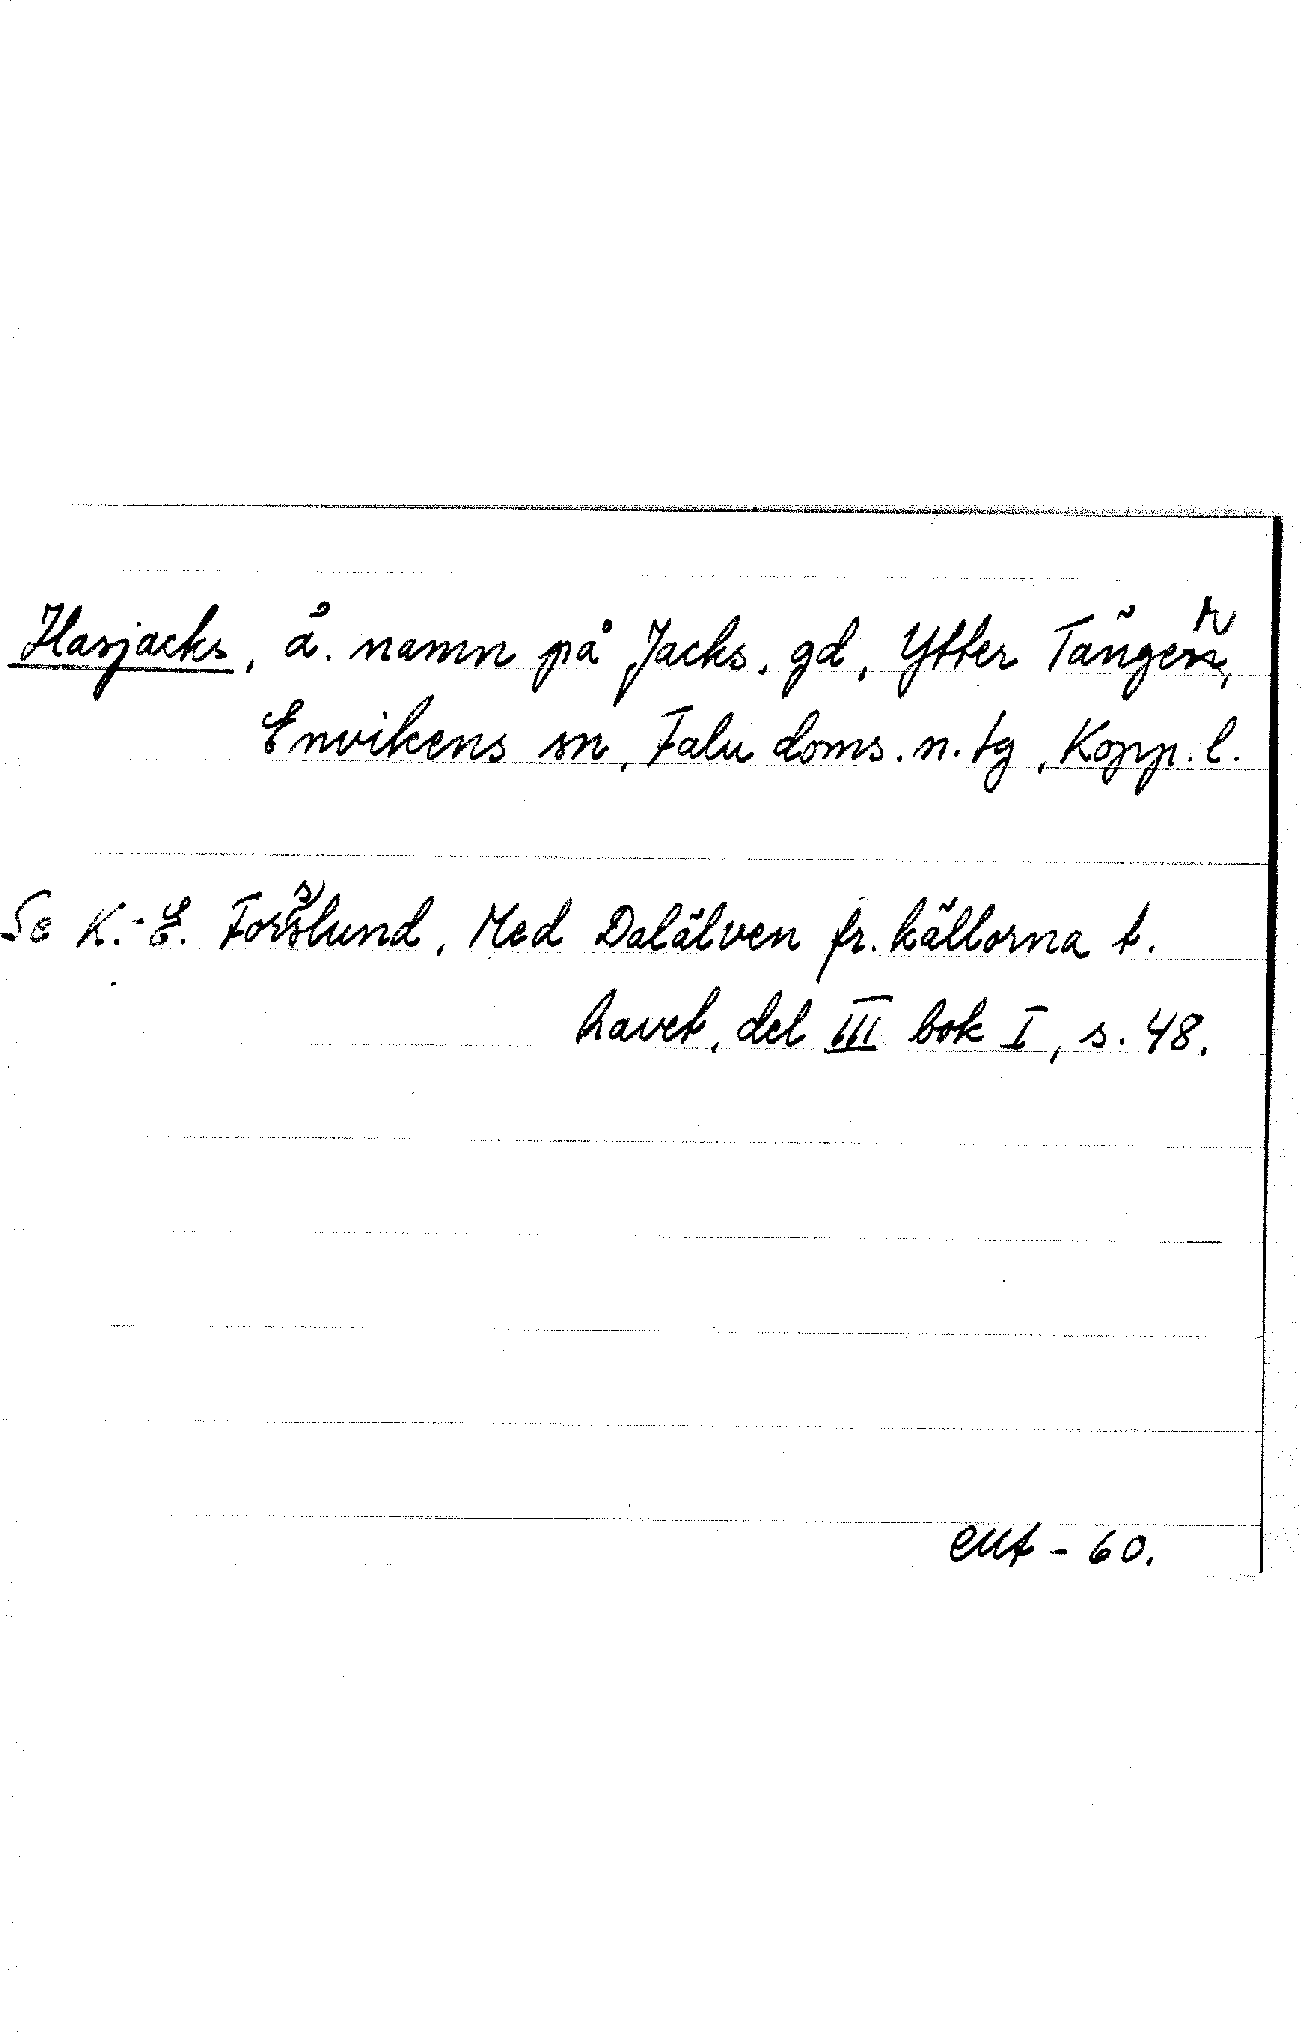 Hasjacks, å. namn på Jacks, gd, Ytter Tänger,
Envikens sn, Falu doms. n. tg, Kopp. l.
Se K.-E. Forslund, Med Dalälven fr. källorna t.
havet, del III bok I, s. 48.
EMt - 60.